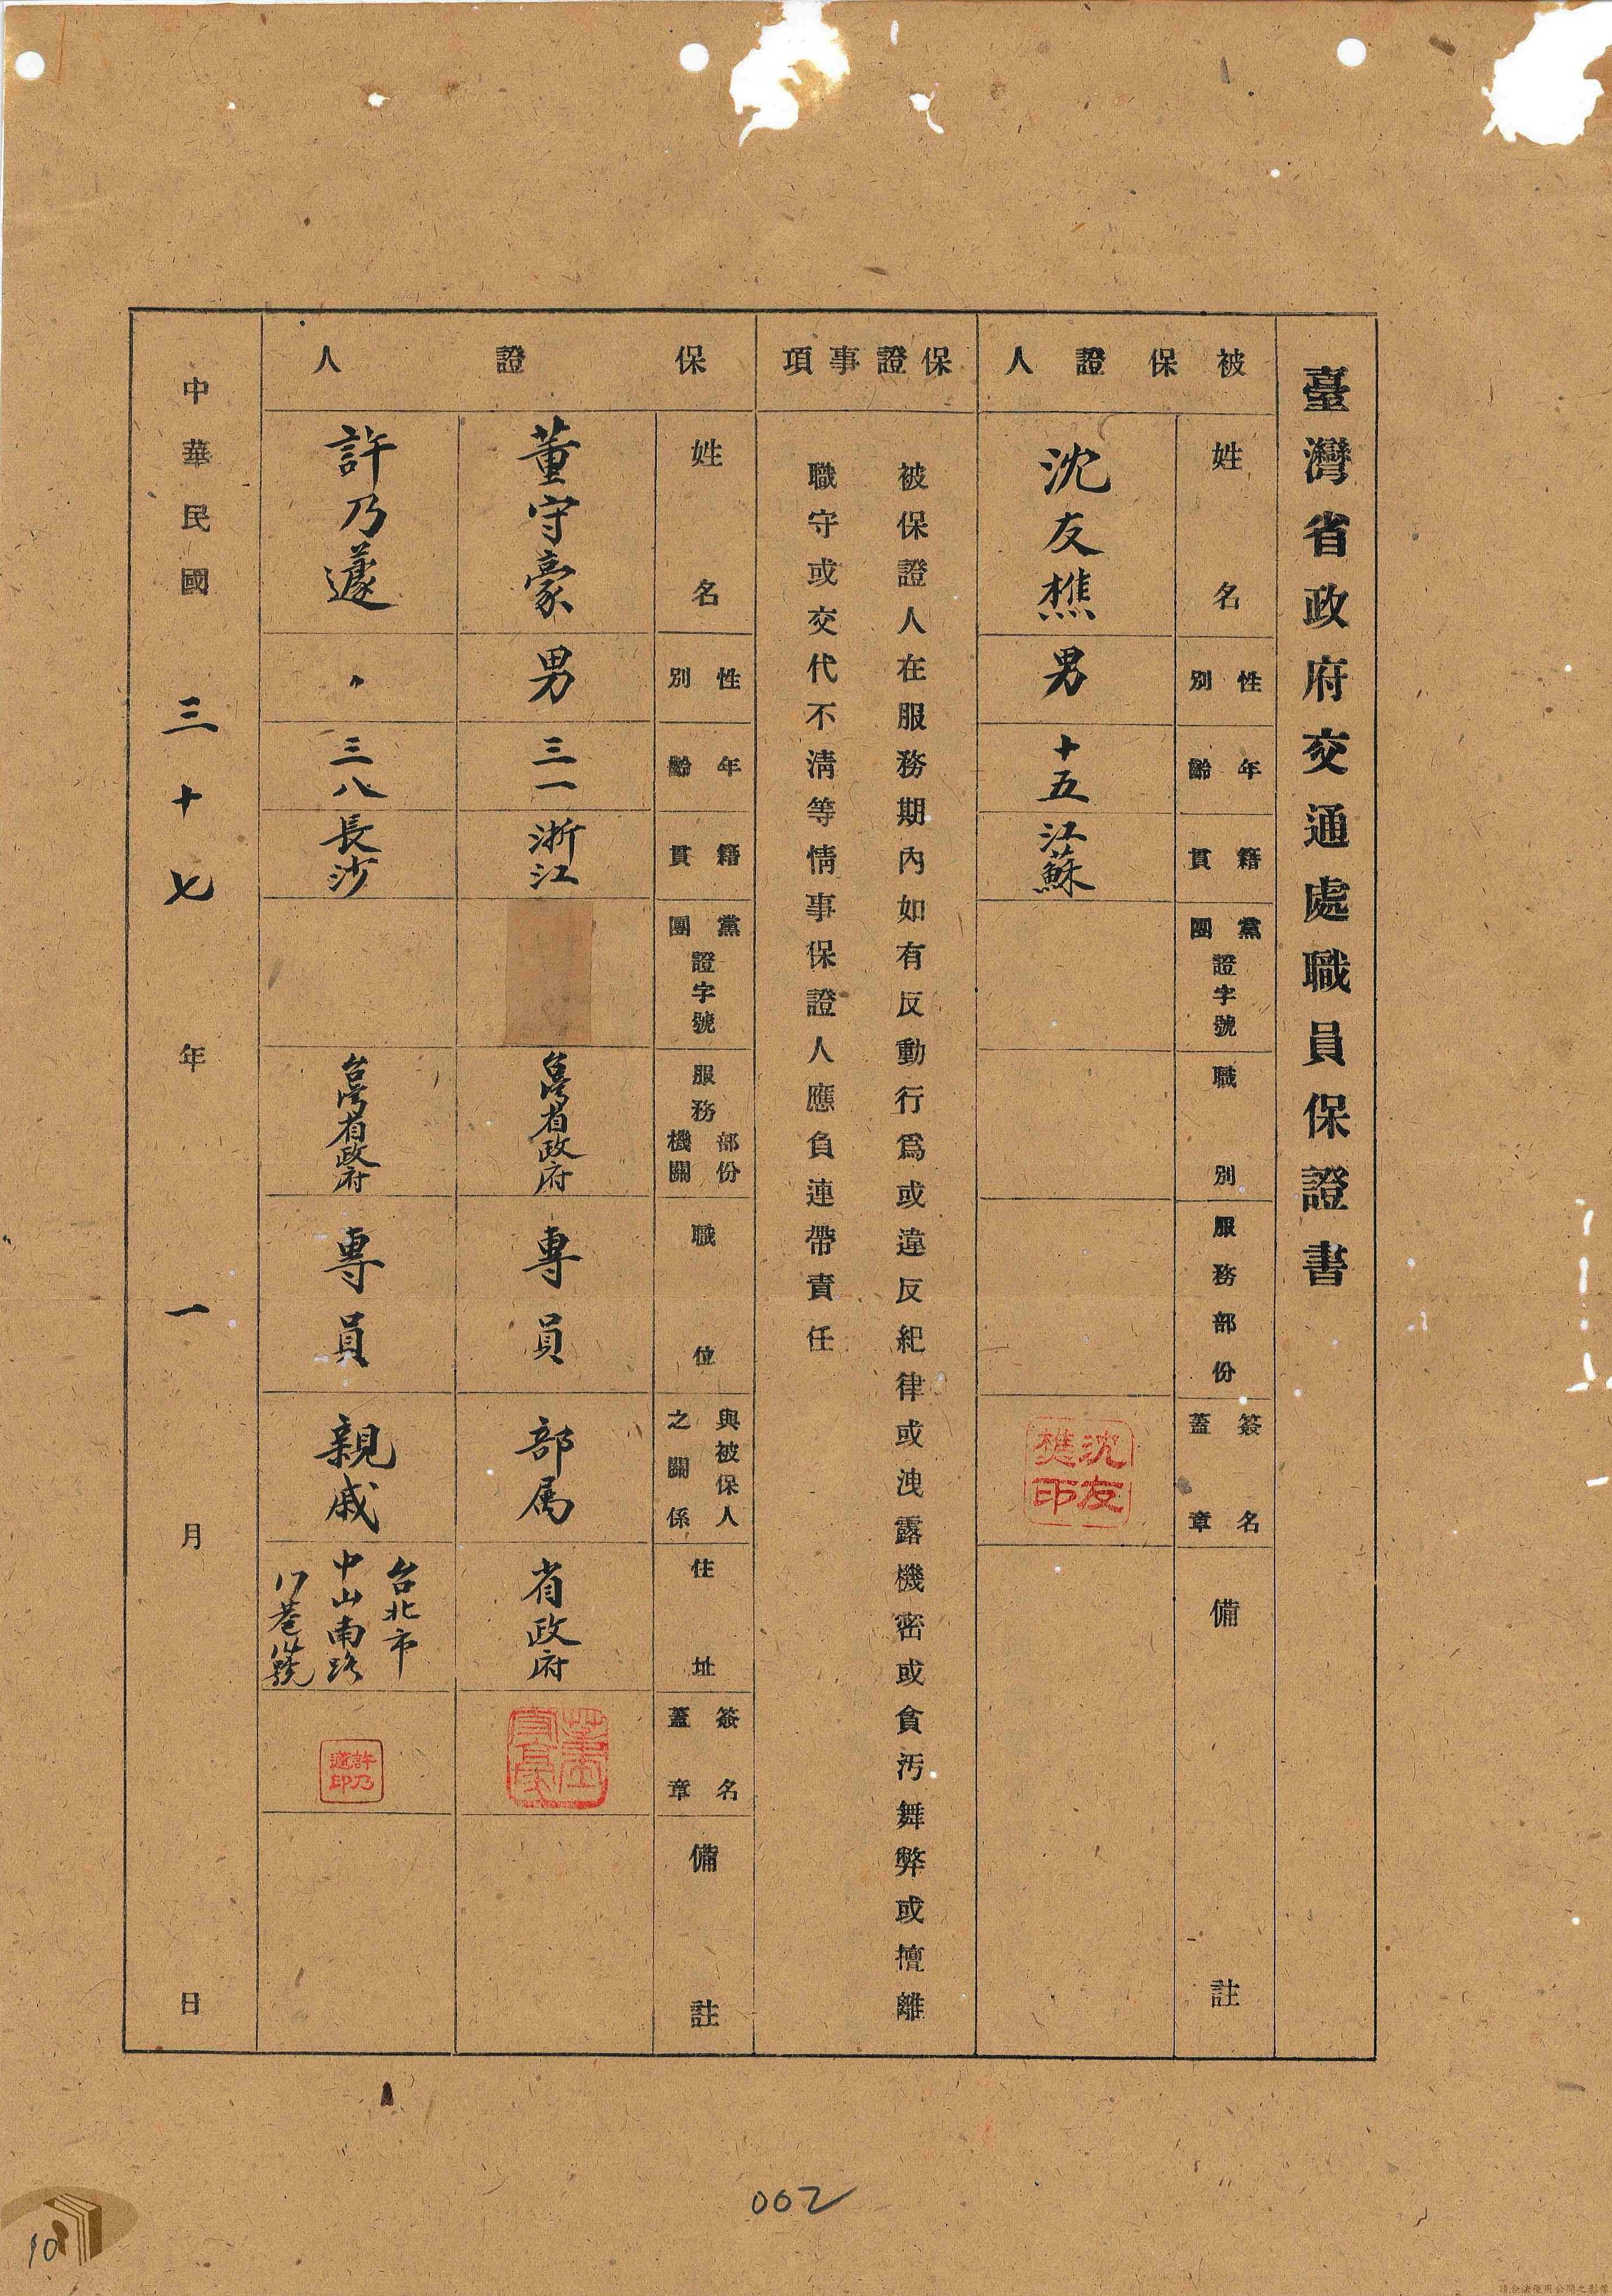 臺灣省政府交通處職員保證書
被保證人
姓名
性別
年齡
籍貫
黨團證字號
職別
服務部份
簽名蓋章
備註
沈友樵
男
十五
江蘇
沈友樵印
保證事項
被保證人在服務期內如有反動行為或違反紀律或洩露機密或貪污舞弊或擅離
職守或交代不清等情事保證人應負連帶責任
保證人
姓名
性別
年齡
籍貫
黨團證字號
服務部份機關
職位
與被保人之關係
住址
簽名蓋章
備註
董守豪
男
三一
浙江
台灣省政府
專員
部屬
省政府
董守豪
許乃蘧
〃
三八
長沙
台灣省政府
專員
親戚
台北市
中山南路
巷
號
許乃蘧印
中華民國三十七年一月日
002
10
請合法使用公開之影像